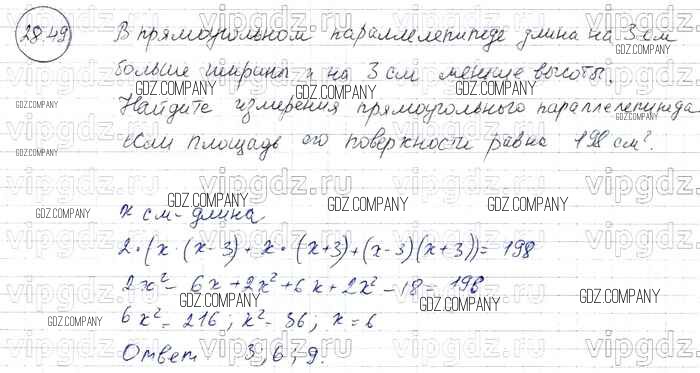 28.49 В прямоугольном параллелепипеде длина на 3 см
больше ширины и на 3 см меньше высоты.
Найдите измерения прямоугольного параллелепипеда
если площадь его поверхности равна 198 см².
x см - длина
2·(x·(x-3)+x·(x+3)+(x-3)(x+3))=198
2x²-6x+2x²+6x+2x²-18=198
6x²=216; x²=36; x=6
Ответ 3; 6; 9.
vipgdz.ru
GDZ.COMPANY